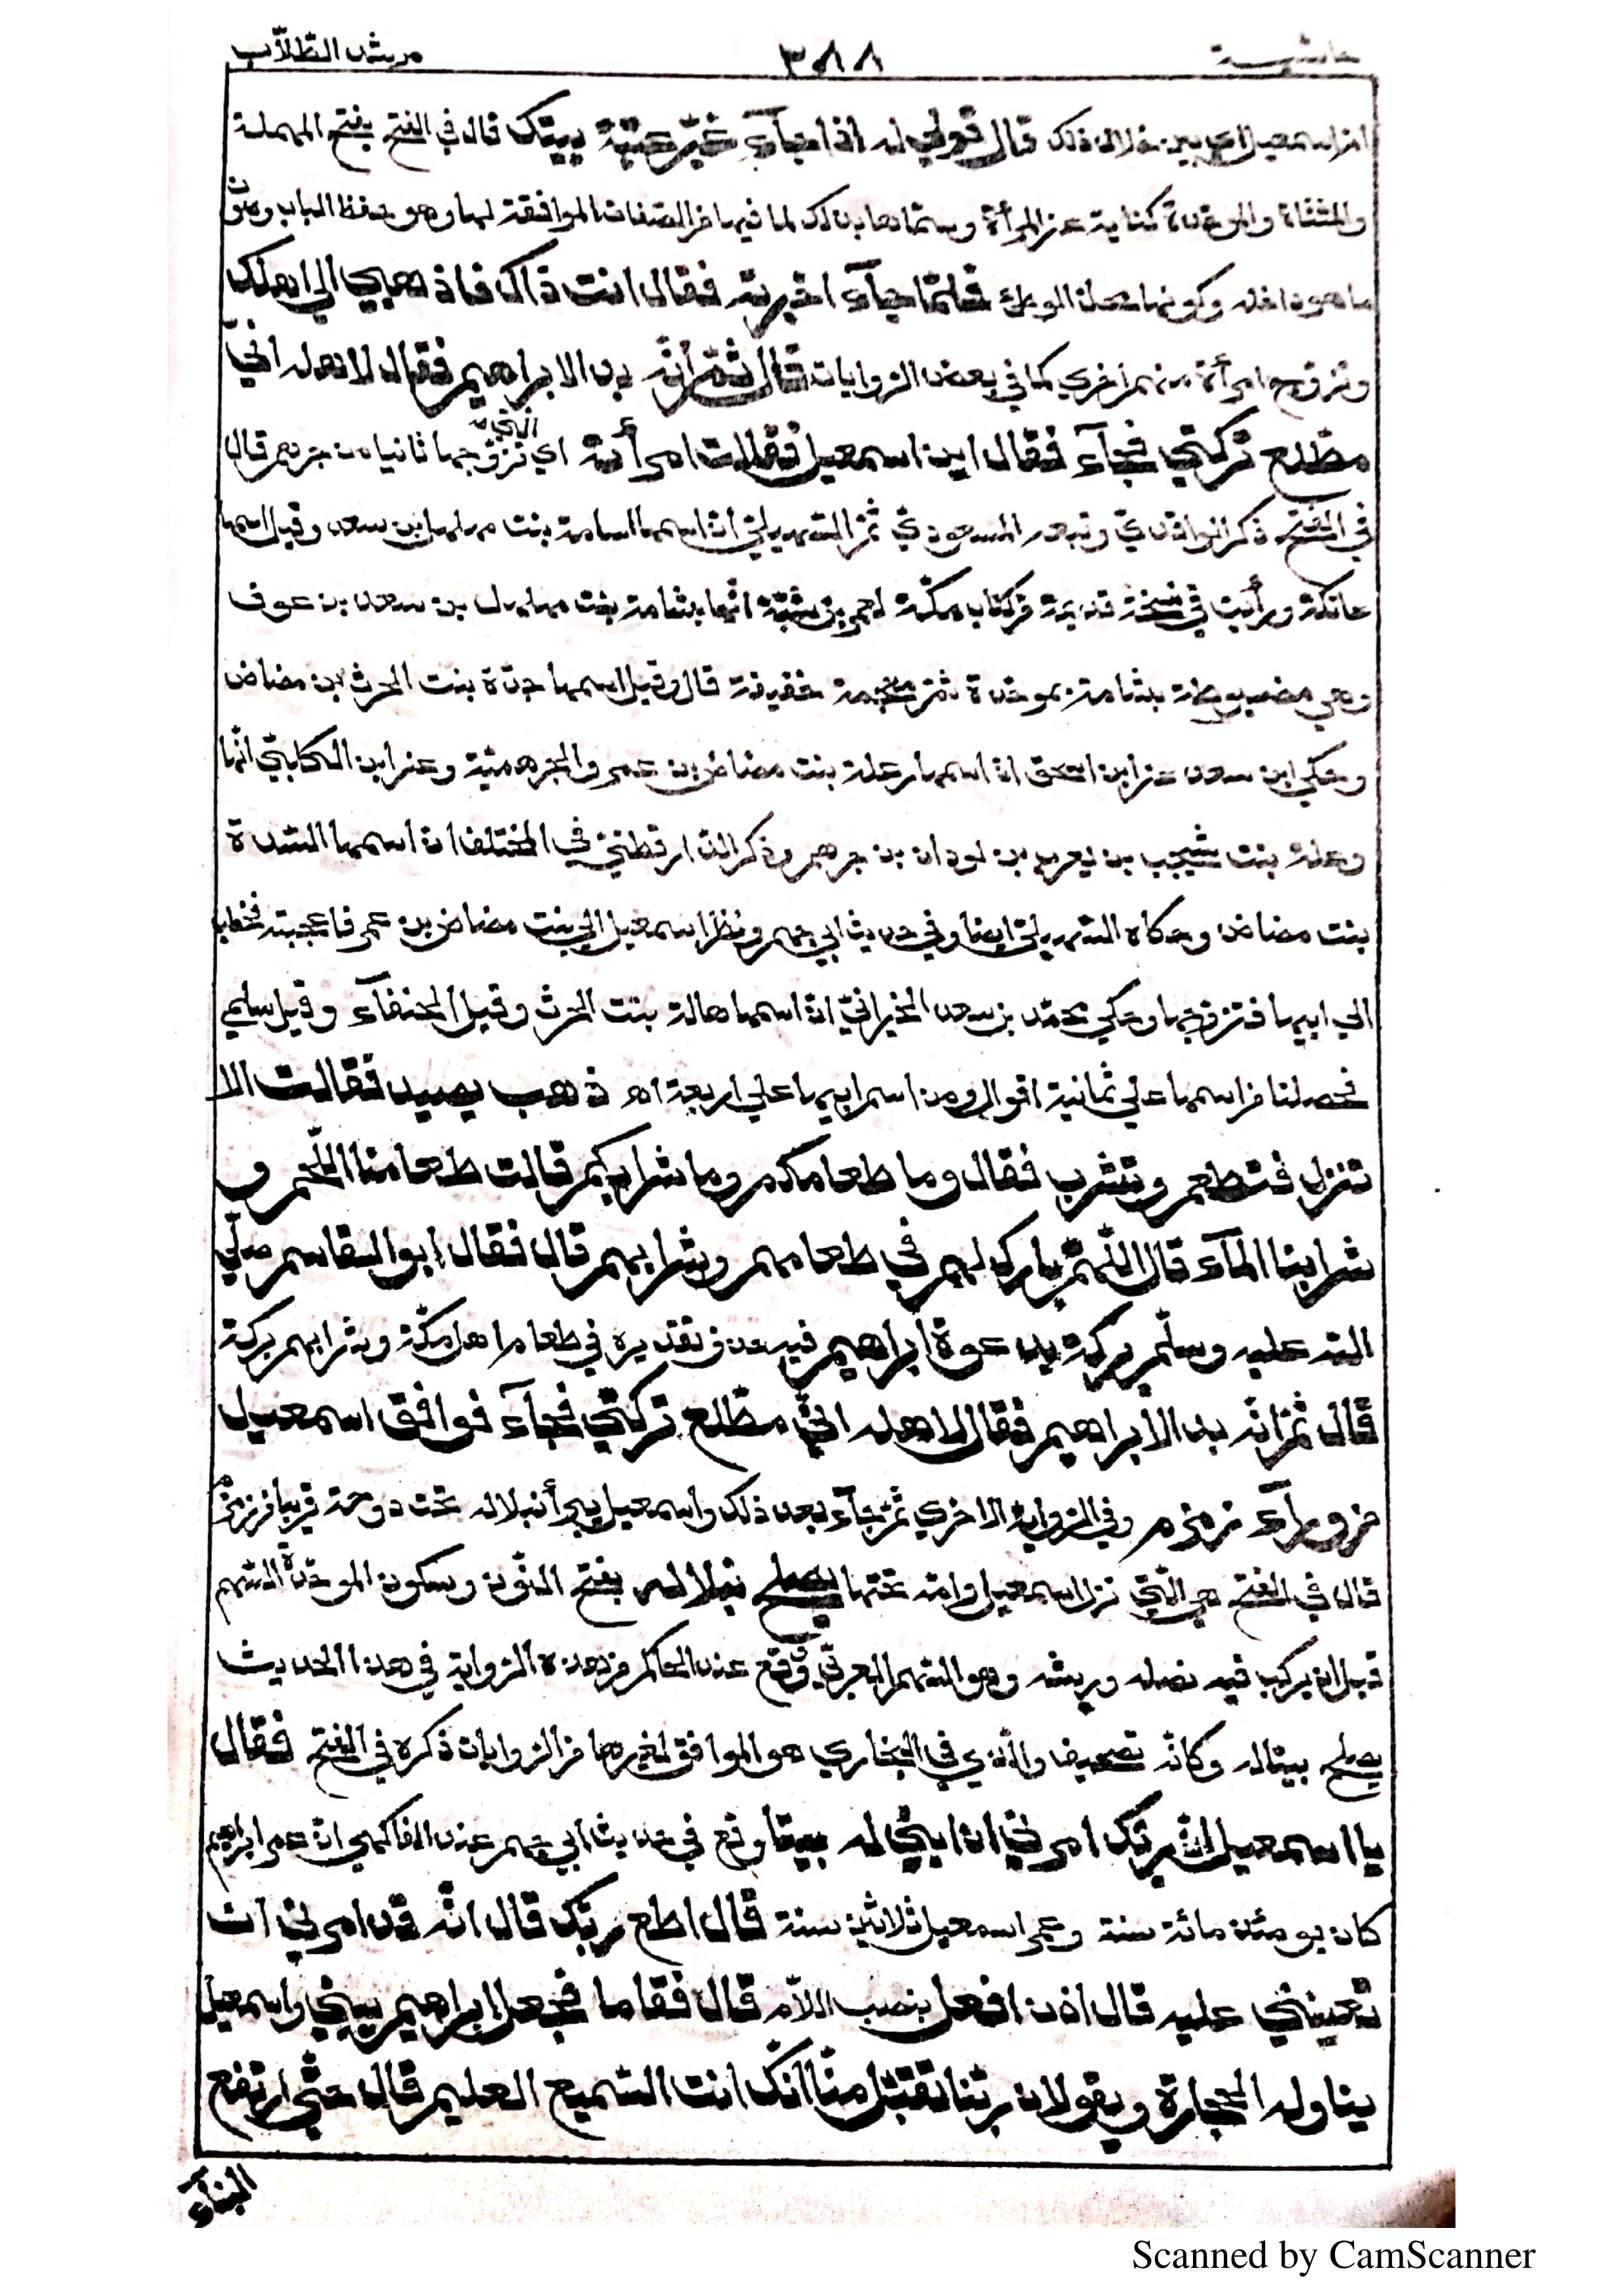 حاشية ٣٨٨ مرشد الطلّاب
اسمعيل خلاف ذلك قال قولي له اذا جآء غيّر عتبة بيتك قال في الفتح بفتح المهملة
والمثناة والموحّدة كناية عن المرأة وسمّاها بذلك لما فيها من الصّفات الموافقة لها وهو حفظ الباب وصون
ما هو داخله وكونها محلّ الوطئ فلمّا جآء اخبرته فقال انت ذاك فاذهبي الي اهلك
وتزوج امرأة منهم اخري كما في بعض الرّوايات قال ثمّ انّه بدا لابراهيم فقال لاهله انّي
مطّلع تركتي فجآء فقال اين اسمعيل فقالت امرأته الّتي اي تزوّجها ثانيا من جرهم قال
في الفتح ذكر الواقديّ وتبعه المسعوديّ ثمّ السّهيليّ انّ اسمها سامة بنت مهلهل بن سعد وقيل اسمها
عاتكة ورأيت في نسخة قديمة من كتاب مكّة لعمر بن شبّة انّها بشامة بنت مهلهل بن سعد بن عوف
وهي مضبوطة بشامة بموحّدة ثمّ معجمة خفيفة قال وقيل اسمها جدّة بنت الحرث بن مضاض
وحكي ابن سعد عن ابن اسحق انّ اسمها رعلة بنت مضاض بن عمرو الجرهميّة وعن ابن الكلبيّ انّها
رعلة بنت يشجب بن يعرب بن لوذان بن جرهم وذكر الدّارقطنيّ في المختلف انّ اسمها السّيّدة
بنت مضاض وحكاه السّهيليّ ايضا وفي حديث ابي جهم ونظر اسمعيل الي بنت مضاض بن عمرو فاعجبته فخطبها
الي ابيها فتزوّجها وحكي محمّد بن سعد الجوّانيّ انّ اسمها هالة بنت الحرث وقيل الحنفآء وقيل سلمي
فحصلنا من اسمها علي ثمانية اقوال ومن اسم ابيها علي اربعة اه ذهب يصيد فقالت الا
تنزل فتطعم وتشرب فقال وما طعامكم وما شرابكم قالت طعامنا اللّحم و
شرابنا المآء قال اللّهمّ بارك لهم في طعامهم وشرابهم قال فقال ابو القاسم صلّي
اللّه عليه وسلّم بركة بدعوة ابراهيم فيه حذف تقديره في طعام اهل مكّة وشرابهم بركة
قال ثمّ انّه بدا لابراهيم فقال لاهله انّي مطّلع تركتي فجآء فوافق اسمعيل
من ورآء زمزم وفي الرّواية الاخري ثمّ جآء بعد ذلك واسمعيل يبرأ نبلا له تحت دوحة قريبا من زمزم
قال في الفتح هي الّتي نزل اسمعيل وامّه تحتها يصلح نبلا له بفتح النّون وسكون الموحّدة السّهم
قبل ان يركب فيه نصله وريشه وهو السّهم العربيّ وقع عند الحاكم من هذه الرّواية في هذا الحديث
يصلح بيتا له وكانّه تصحيف والّذي في البخاري هو الموافق لغيرها من الرّوايات ذكره في الفتح فقال
يا اسمعيل انّ ربّك امرني ان ابني له بيتا وقع في حديث ابي جهم عند الفاكهي انّ عمر ابراهيم
كان يومئذ مائة سنة وعمر اسمعيل ثلاثين سنة قال اطع ربّك قال انّه قد امرني ان
تعينني عليه قال اذن افعل بنصب اللّام قال فقاما فجعل ابراهيم يبني واسمعيل
يناوله الحجارة ويقولان ربّنا تقبّل منّا انّك انت السّميع العليم قال حتّي ارتفع
البنآء
Scanned by CamScanner